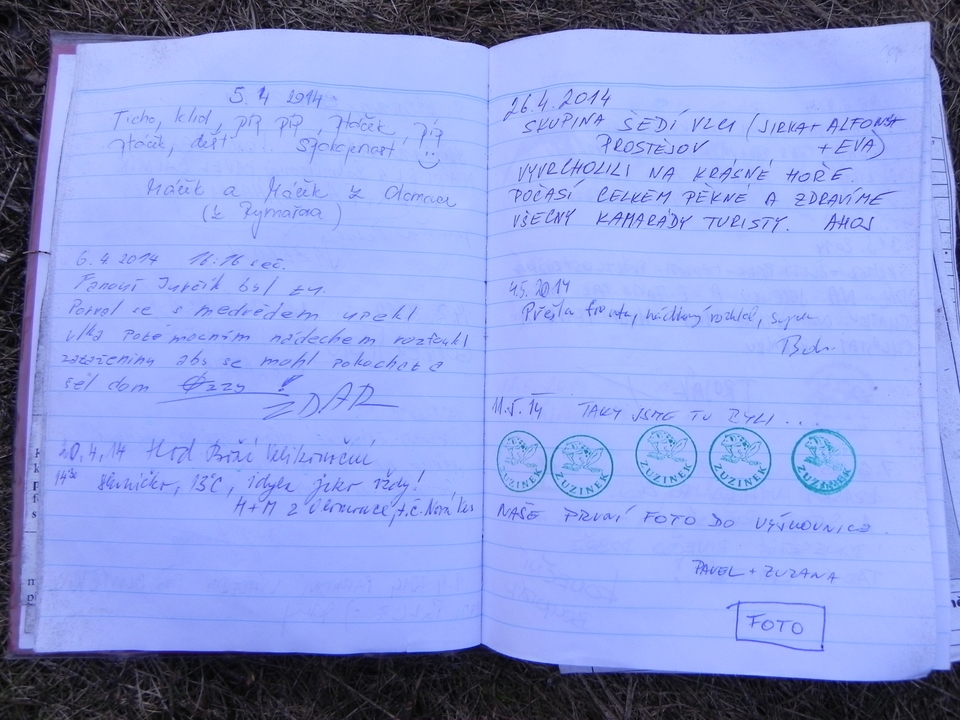 5. 4 2014
Ticho, klid, píp píp, ptáček, píp
ptáček, déšť ... spokojenost
Máček a Máček z Olomouce
(z Rýmařova)
6. 4 2014 16:16 seč.
Fanouš Jurčík byl tu
Porval se s medvědem utekl
vlka poté mocným nádechem roztáhl
zataženinu aby se mohl pokochat a
šel dom Ozzy!
ZDAR
20.4.14 Hod Boží Velikonoční
Sluníčko, 13°C, idyla jako vždy!
H+M z Olomouce, t.č. Nová Ves
26.4.2014
SKUPINA ŠEDÍ VLCI (JIRKA + ALFONS
PROSTĚJOV + EVA)
VYVRCHOLILI NA KRÁSNÉ HOŘE.
POČASÍ CELKEM PĚKNÉ A ZDRAVÍME
VŠECNY KAMARÁDY TURISTY. AHOJ
4.5.2014
Přešla fronta, nádherný rozhled,
11.5.14 TAKY JSME TU BYLI ...
ZUZINEK ZUZINEK ZUZINEK ZUZINEK ZUZINEK
NAŠE PRVNÍ FOTO DO VÝŠKOVNICE.
PAVEL + ZUZANA
FOTO